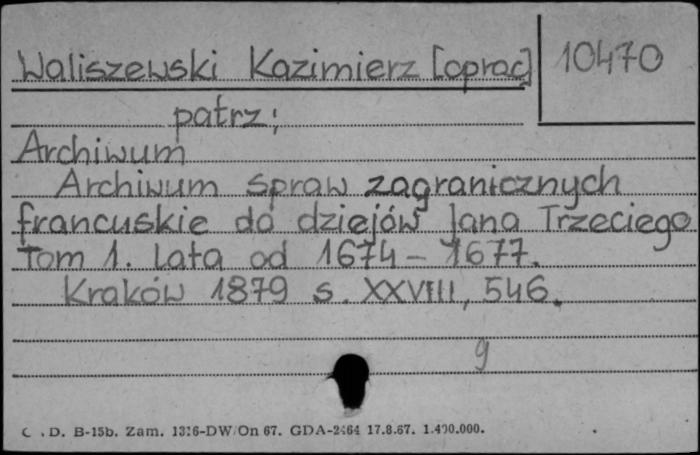 Waliszewski Kazimierz [oprac] 10470
patrz;
Archiwum
Archiwum spraw zagranicznych
francuskie do dziejów Jana Trzeciego
Tom 1. Lata od 1674 - 1677.
Kraków 1879 s. XXVIII, 546.
g
D. B-15b. Zam. 1316-DW/On 67. GDA-2464 17.8.67. 1.400.000.